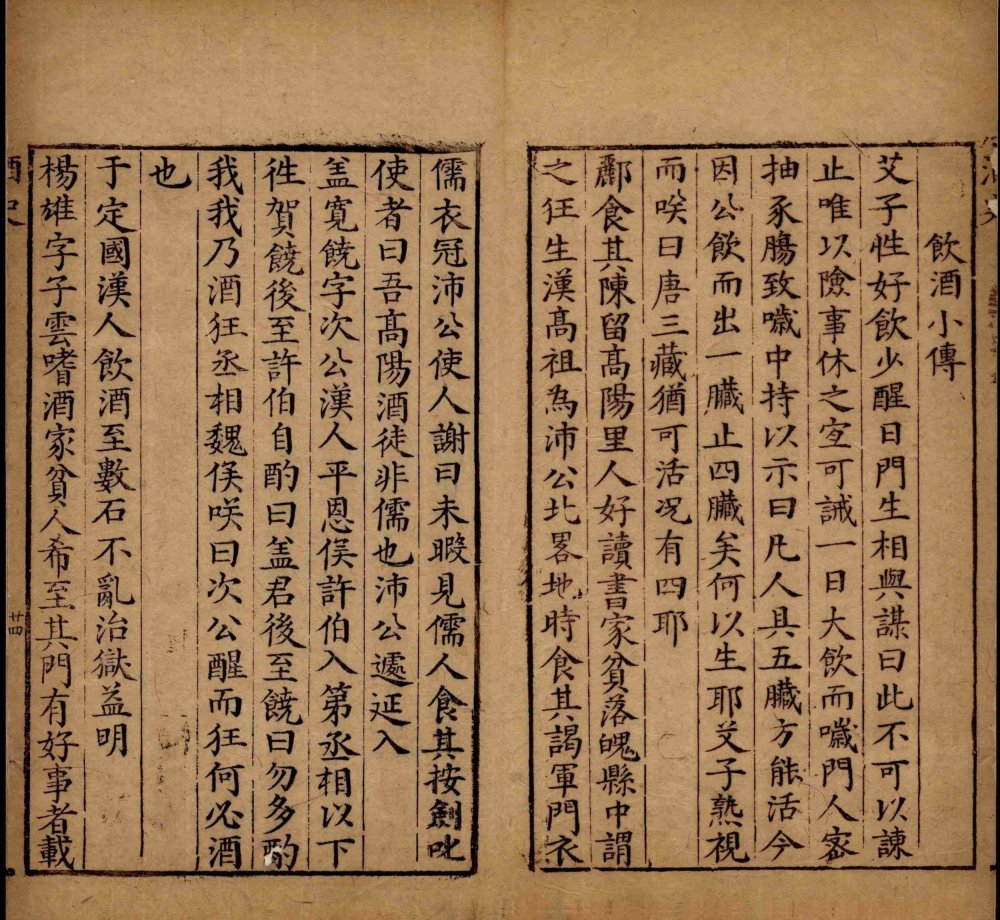 飲酒小傳
艾子性好飲少醒日門生相與謀曰此不可以諫
止唯以險事休之宐可誡一日大飲而噦門人宻
抽豕膓致噦中持以示曰凡人具五臟方能活今
因公飲而出一臟止四臟矣何以生耶艾子熟視
而咲曰唐三藏猶可活况有四耶
酈食其陳留髙陽里人好讀書家貧落魄縣中謂
之狂生漢髙祖為沛公北畧地時食其謁軍門衣
儒衣冠沛公使人謝曰未暇見儒人食其按劍叱
使者曰吾髙陽酒徒非儒也沛公遽延入
盖寬饒字次公漢人平恩侯許伯入第丞相以下
徃賀饒後至許伯自酌曰盖君後至饒曰勿多酌
我我乃酒狂丞相魏侯咲曰次公醒而狂何必酒
也
于定國漢人飲酒至數石不亂治獄益明
楊雄字子雲嗜酒家貧人希至其門有好事者載
酒史
廿四